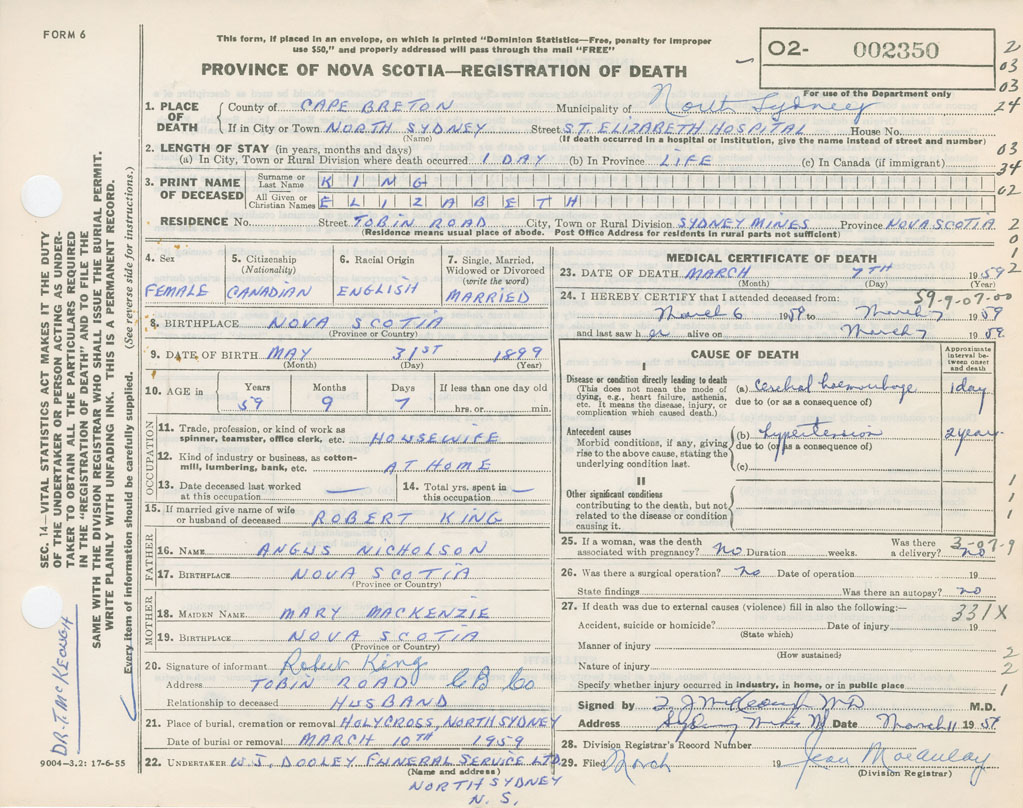 FORM 6
This form, if placed in an envelope, on which is printed "Dominion Statistics—Free, penalty for improper
use $50," and properly addressed will pass through the mail "FREE"
PROVINCE OF NOVA SCOTIA—REGISTRATION OF DEATH
O2- 002350
For use of the Department only
2
03
03
24
03
34
02
2
0
1
2
SEC. 14—VITAL STATISTICS ACT MAKES IT THE DUTY
OF THE UNDERTAKER OR PERSON ACTING AS UNDER-
TAKER TO OBTAIN ALL THE PARTICULARS REQUIRED
IN THE "REGISTRATION OF DEATH" AND TO FILE THE
SAME WITH THE DIVISION REGISTRAR WHO SHALL ISSUE THE BURIAL PERMIT.
WRITE PLAINLY WITH UNFADING INK. THIS IS A PERMANENT RECORD.
Every item of information should be carefully supplied. (See reverse side for instructions.)
DR. T. McKEOUGH
9004-3.2: 17-6-55
1. PLACE OF DEATH County of CAPE BRETON Municipality of North Sydney
If in City or Town NORTH SYDNEY Street ST. ELIZABETH HOSPITAL House No.
(Name) (If death occurred in a hospital or institution, give the name instead of street and number)
2. LENGTH OF STAY (in years, months and days)
(a) In City, Town or Rural Division where death occurred 1 DAY (b) In Province LIFE (c) In Canada (if immigrant)
3. PRINT NAME OF DECEASED Surname or Last Name KING
All Given or Christian Names ELIZABETH
RESIDENCE No. Street TOBIN ROAD City, Town or Rural Division SYDNEY MINES Province NOVA SCOTIA
(Residence means usual place of abode. Post Office Address for residents in rural parts not sufficient)
4. Sex FEMALE
5. Citizenship (Nationality) CANADIAN
6. Racial Origin ENGLISH
7. Single, Married, Widowed or Divorced (write the word) MARRIED
8. BIRTHPLACE NOVA SCOTIA
(Province or Country)
9. DATE OF BIRTH MAY 31ST 1899
(Month) (Day) (Year)
10. AGE in Years Months Days If less than one day old
59 9 7 hrs. or min.
OCCUPATION
11. Trade, profession, or kind of work as
spinner, teamster, office clerk, etc. HOUSEWIFE
12. Kind of industry or business, as cotton-
mill, lumbering, bank, etc. AT HOME
13. Date deceased last worked at this occupation —
14. Total yrs. spent in this occupation —
15. If married give name of wife
or husband of deceased ROBERT KING
FATHER
16. NAME ANGUS NICHOLSON
17. BIRTHPLACE NOVA SCOTIA
(Province or Country)
MOTHER
18. MAIDEN NAME MARY MACKENZIE
19. BIRTHPLACE NOVA SCOTIA
(Province or Country)
20. Signature of informant Robert King
Address TOBIN ROAD C B Co
Relationship to deceased HUSBAND
21. Place of burial, cremation or removal HOLY CROSS, NORTH SYDNEY
Date of burial or removal MARCH 10TH 1959
22. UNDERTAKER W.J. DOOLEY FUNERAL SERVICE LTD
(Name and address)
NORTH SYDNEY
N. S.
MEDICAL CERTIFICATE OF DEATH
23. DATE OF DEATH MARCH 7TH 1959
(Month) (Day) (Year)
24. I HEREBY CERTIFY that I attended deceased from: 59-9-07-00
March 6 1959 to March 7 1959
and last saw her alive on March 7 1959
CAUSE OF DEATH
Approximate interval between onset and death
I
Disease or condition directly leading to death
(This does not mean the mode of
dying, e.g., heart failure, asthenia,
etc. It means the disease, injury, or
complication which caused death.)
(a) Cerebral haemorrhage 1 day
due to (or as a consequence of)
Antecedent causes
Morbid conditions, if any, giving
rise to the above cause, stating the
underlying condition last.
(b) hypertension 2 years
due to (or as a consequence of)
(c)
II
Other significant conditions
contributing to the death, but not
related to the disease or condition
causing it.
1
1
1
25. If a woman, was the death Was there 3-07-9
associated with pregnancy? No Duration weeks. a delivery? No
26. Was there a surgical operation? No Date of operation 19
State findings Was there an autopsy? No
27. If death was due to external causes (violence) fill in also the following:— 331X
Accident, suicide or homicide? Date of injury 19
(State which)
Manner of injury 2
(How sustained)
Nature of injury 2
Specify whether injury occurred in industry, in home, or in public place 1
Signed by T J McKeough MD M.D.
Address Sydney Mines Date March 11 1959
28. Division Registrar's Record Number
29. Filed March 19 Jean Macaulay
(Division Registrar)